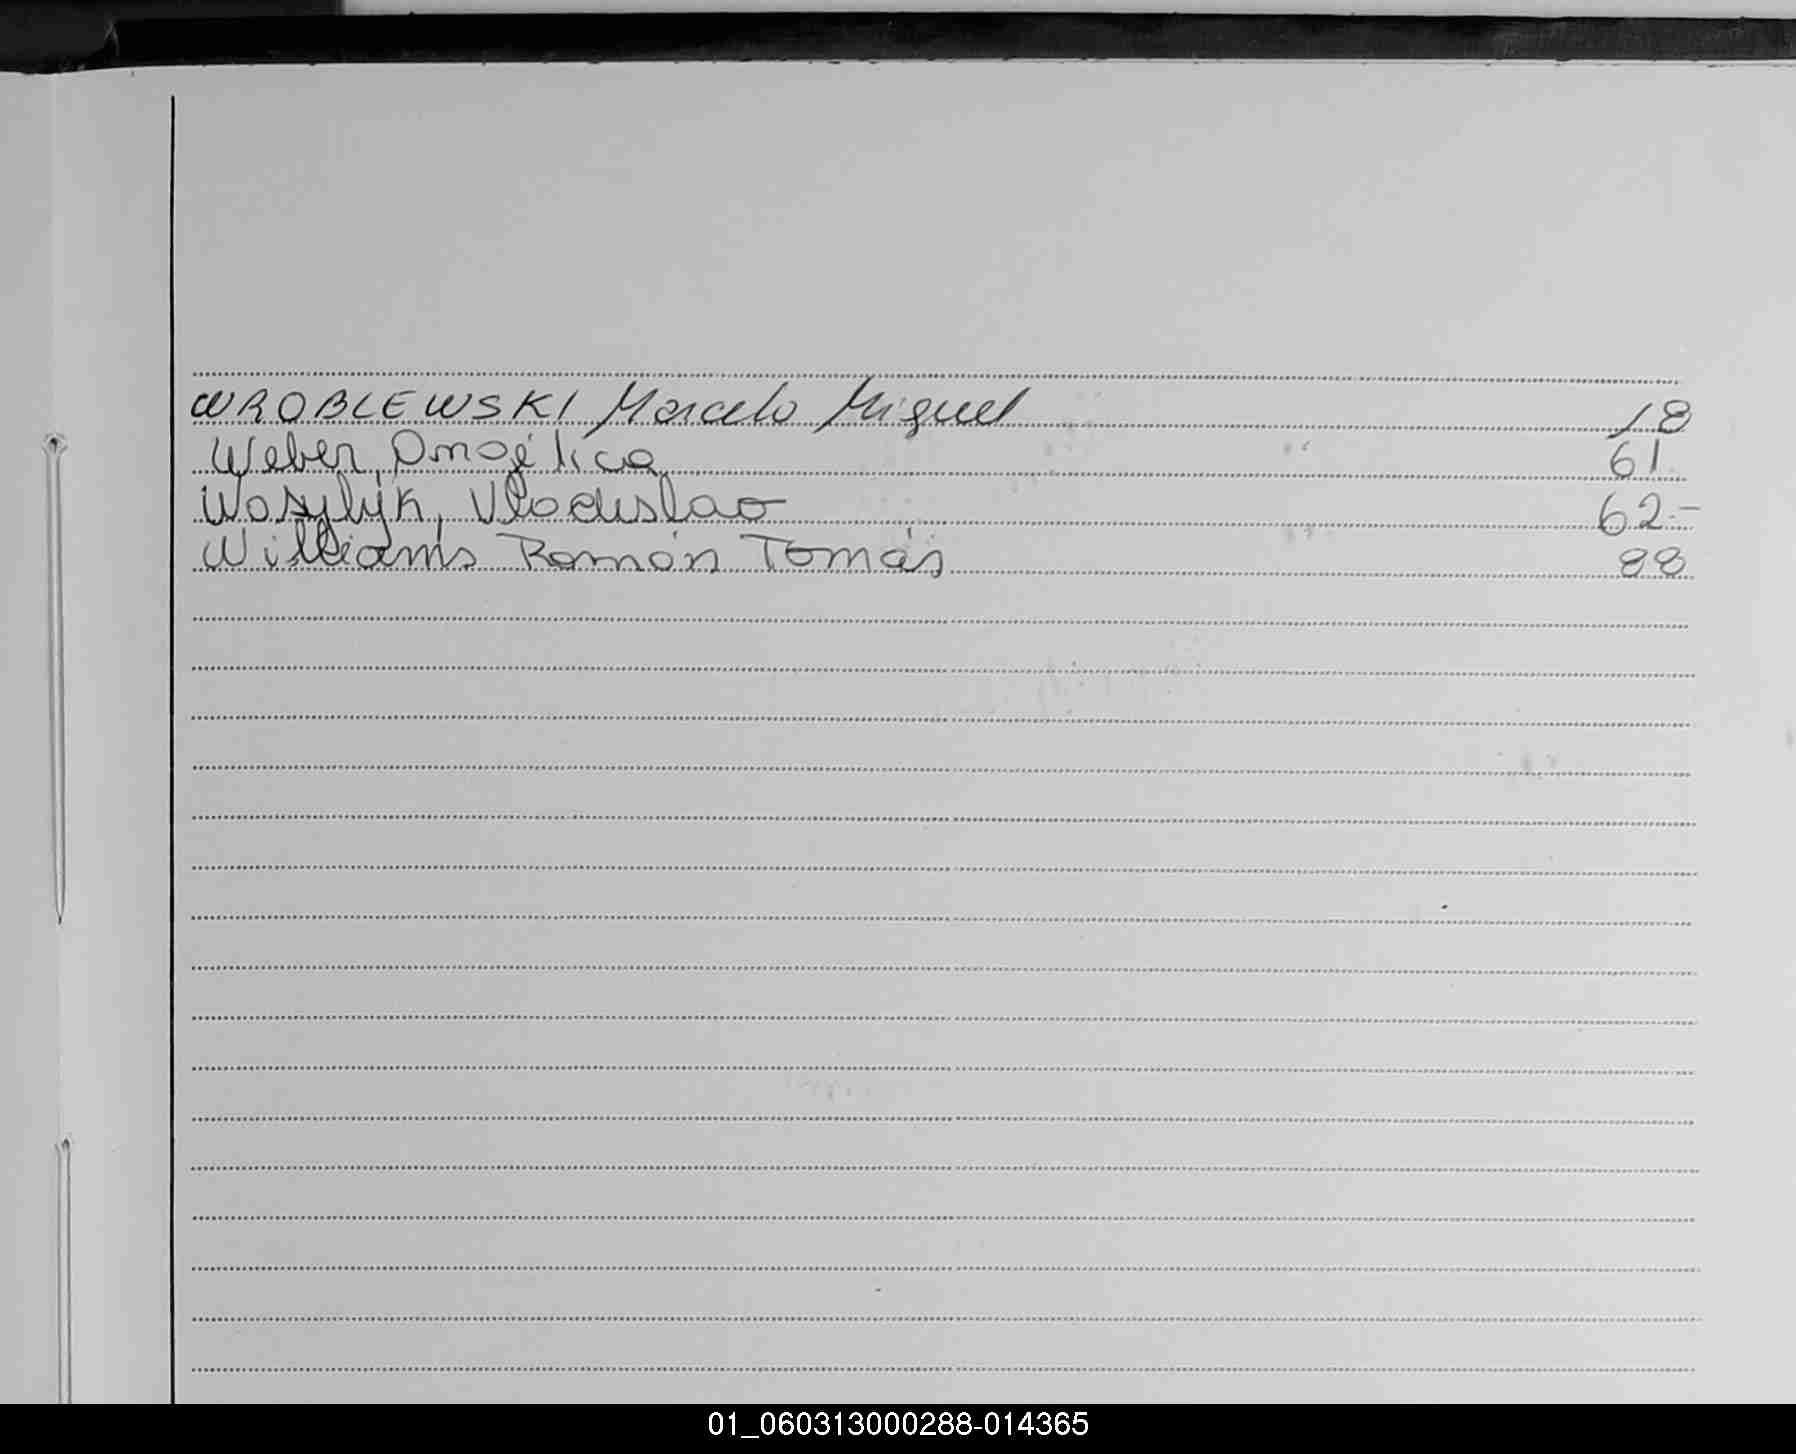 WROBLEWSKI Marcelo Miguel 18
Weber, Angélica 61
Wasylyk, Vladislao 62.-
Williams Ramón Tomás 88
01_060313000288-014365